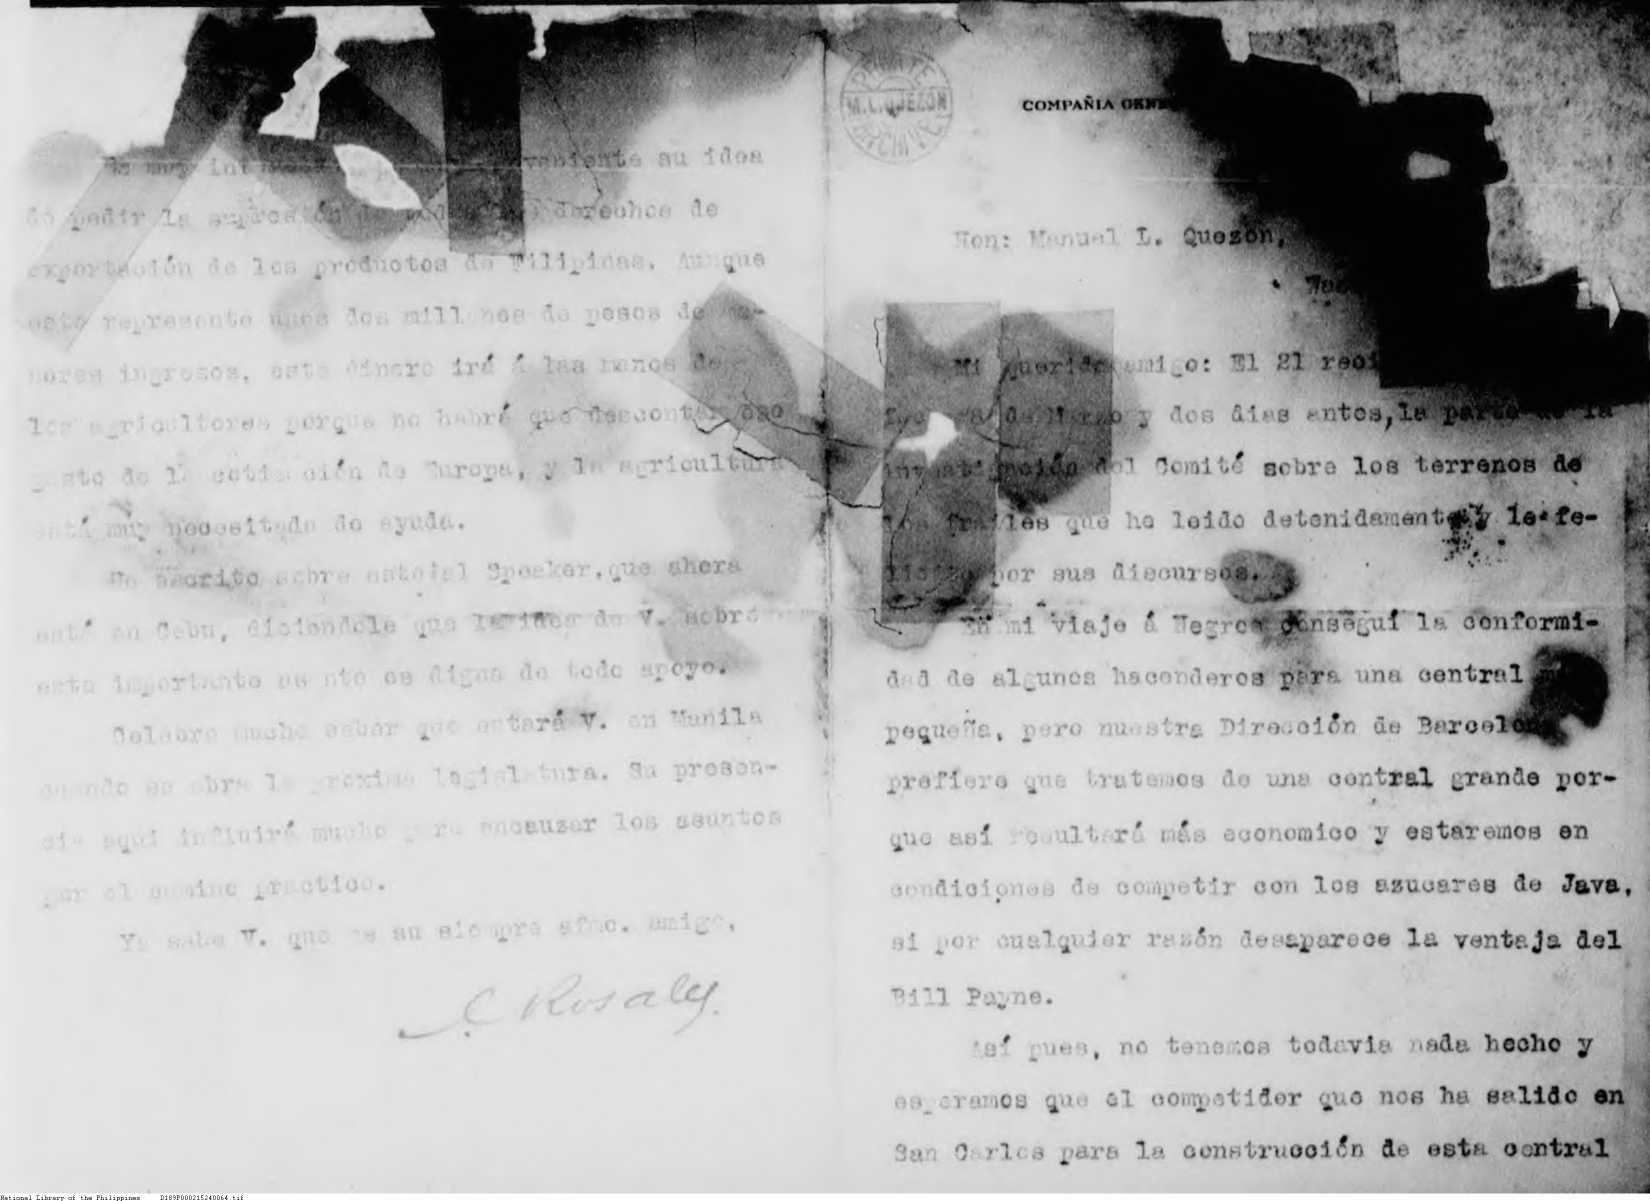 PRIVATE
M. L. QUEZON
ARCHIVES
COMPAÑIA GENE
Hon: Manuel L. Quezón,
Mi querido amigo: El 21 reci
de Marzo y dos dias antes, la parte de la
investigación del Comité sobre los terrenos de
los frailes que he leido detenidamente y le fe-
licito por sus discursos.
En mi viaje á Negros conseguí la conformi-
dad de algunos hacenderos para una central
pequeña, pero nuestra Dirección de Barcelona
prefiere que tratemos de una central grande por-
que así resultará más economico y estaremos en
condiciones de competir con los azucares de Java,
si por cualquier razón desaparece la ventaja del
Bill Payne.
Así pues, no tenemos todavia nada hecho y
esperamos que el competidor que nos ha salido en
San Carlos para la construcción de esta central
Es muy su idea
de pedir la supresión de derechos de
exportación de los productos de Filipinas. Aunque
esto represente unos dos millones de pesos de me-
nores ingresos, este dinero irá á las manos de
los agricultores porque no habrá que descontar ese
gasto de la cotización de Europa, y la agricultura
está muy necesitada de ayuda.
He escrito sobre esto al Speaker, que ahora
está en Cebu, diciendole que la idea de V. sobre
este importante asunto es digna de todo apoyo.
Celebro mucho saber que estará V. en Manila
cuando se abra la proxima legislatura. Su presen-
cia aqui influirá mucho para encauzar los asuntos
por el camino practico.
Ya sabe V. que es su siempre afmo. amigo,
C. Rosales.
National Library of the Philippines D189P000215240064.tif